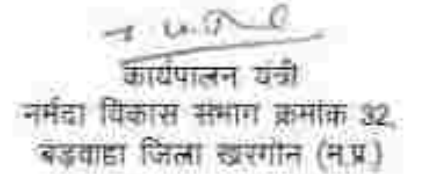 कार्यपालन यंत्री
नर्मदा विकास संभाग क्रमांक 32,
बड़वाहा जिला खरगोन (म.प्र.)